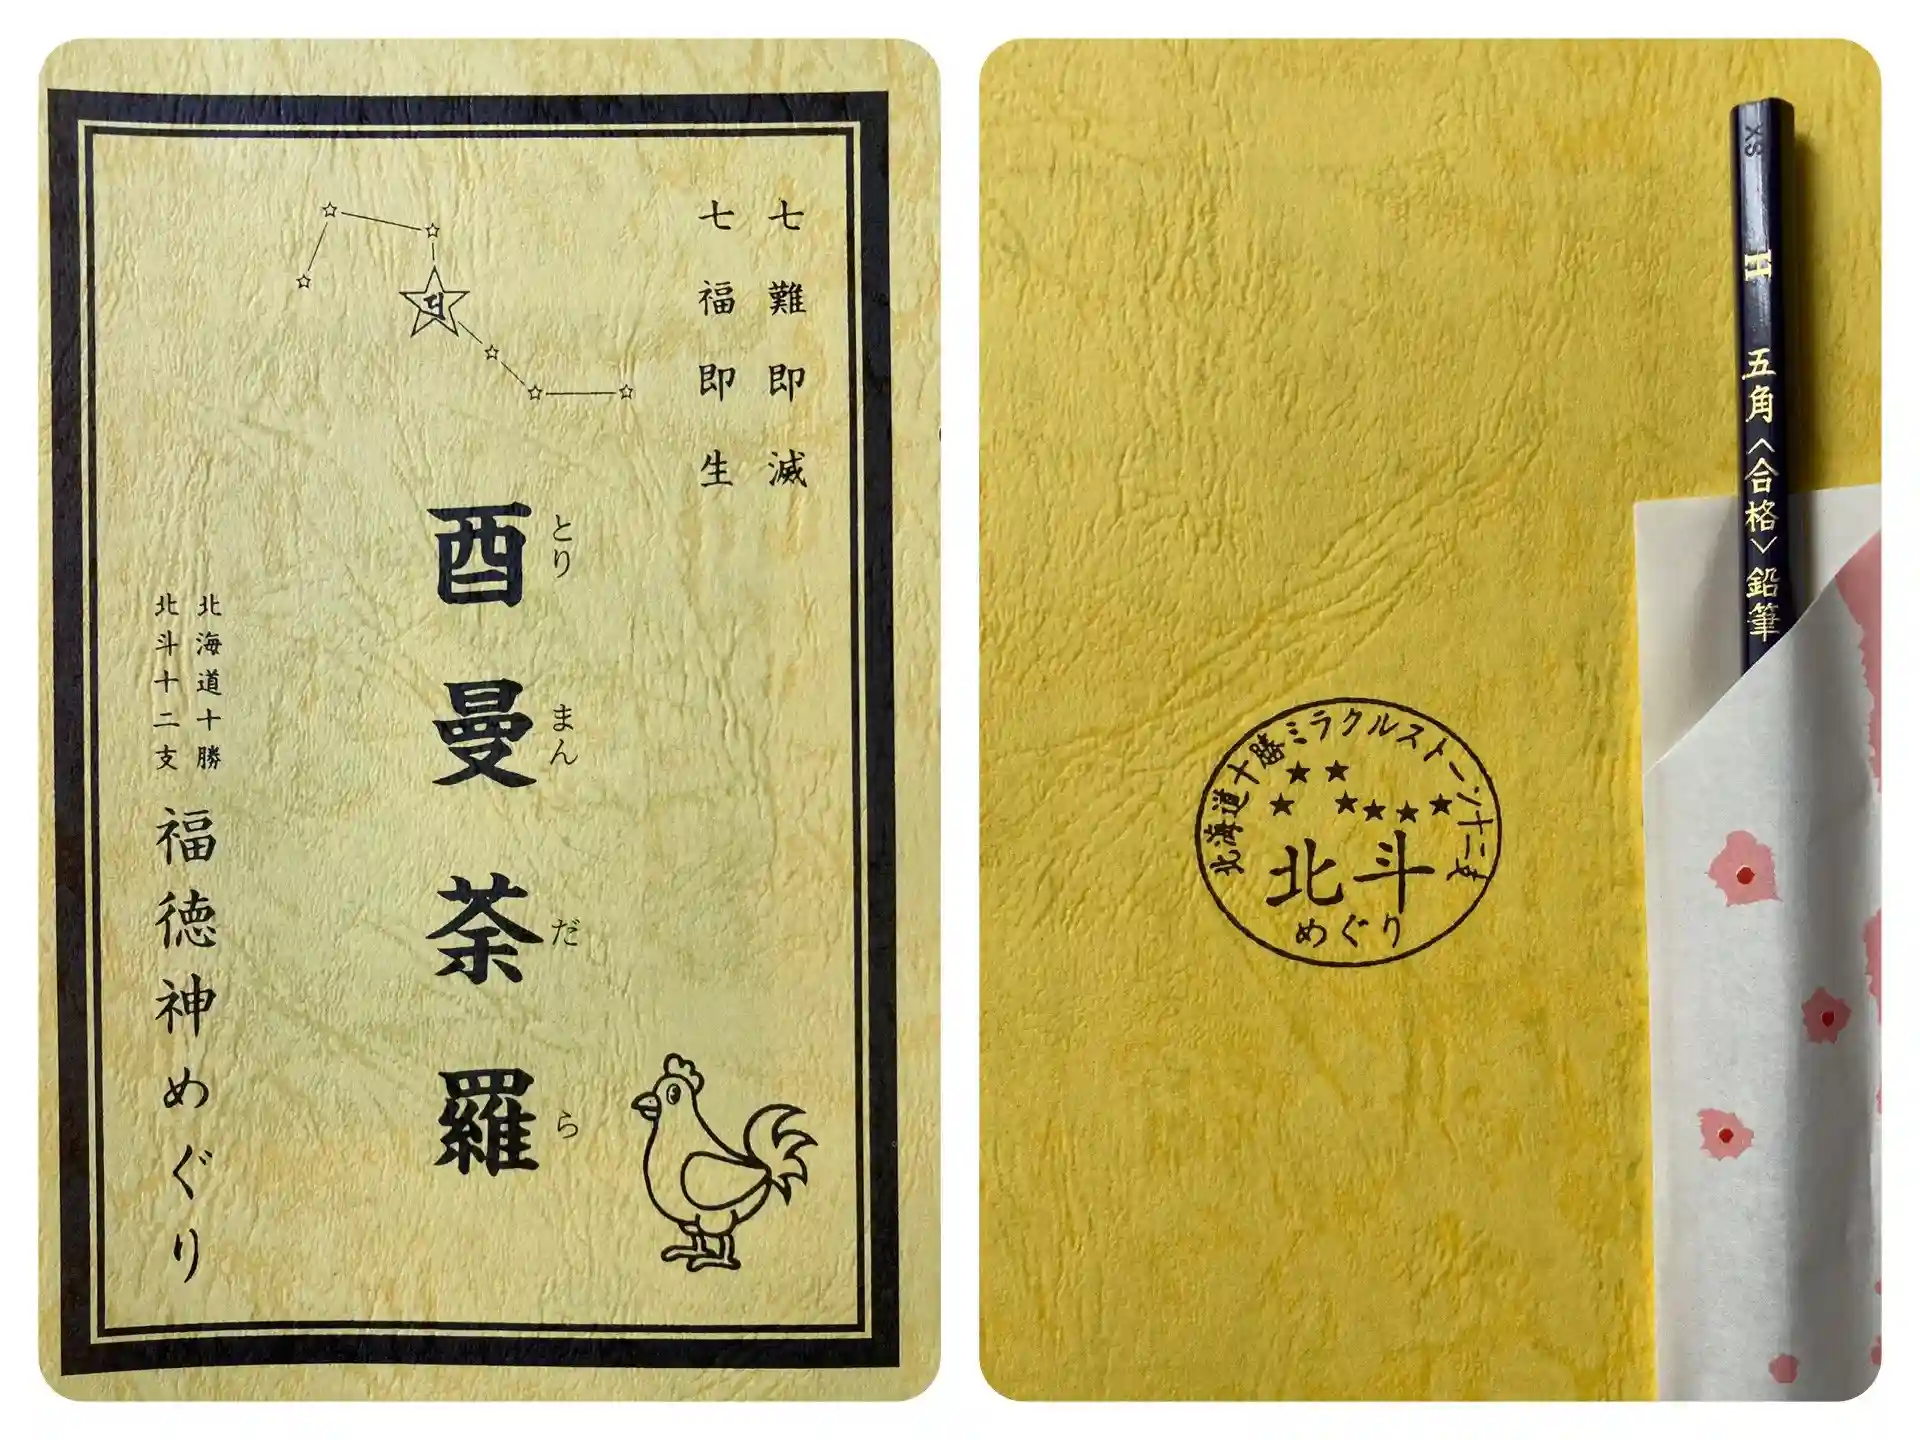 七難即滅
七福即生
酉曼荼羅
とりまんだら
北海道十勝
北斗十二支
福徳神めぐり
北海道十勝ミラクルストーン十二支
北斗
めぐり
H 五角〈合格〉鉛筆